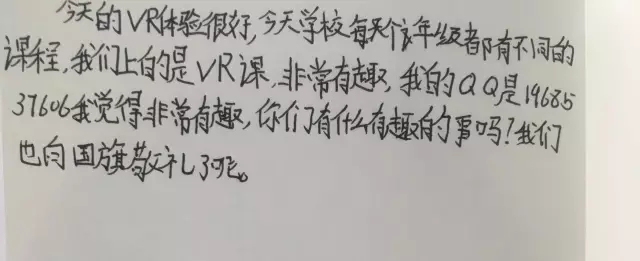 今天的VR体验很好,今天学校每个年级都有不同的
课程,我们上的是VR课,非常有趣,我的QQ是19685
37606我觉得非常有趣,你们有什么有趣的事吗?我们
也向国旗敬礼了呢。